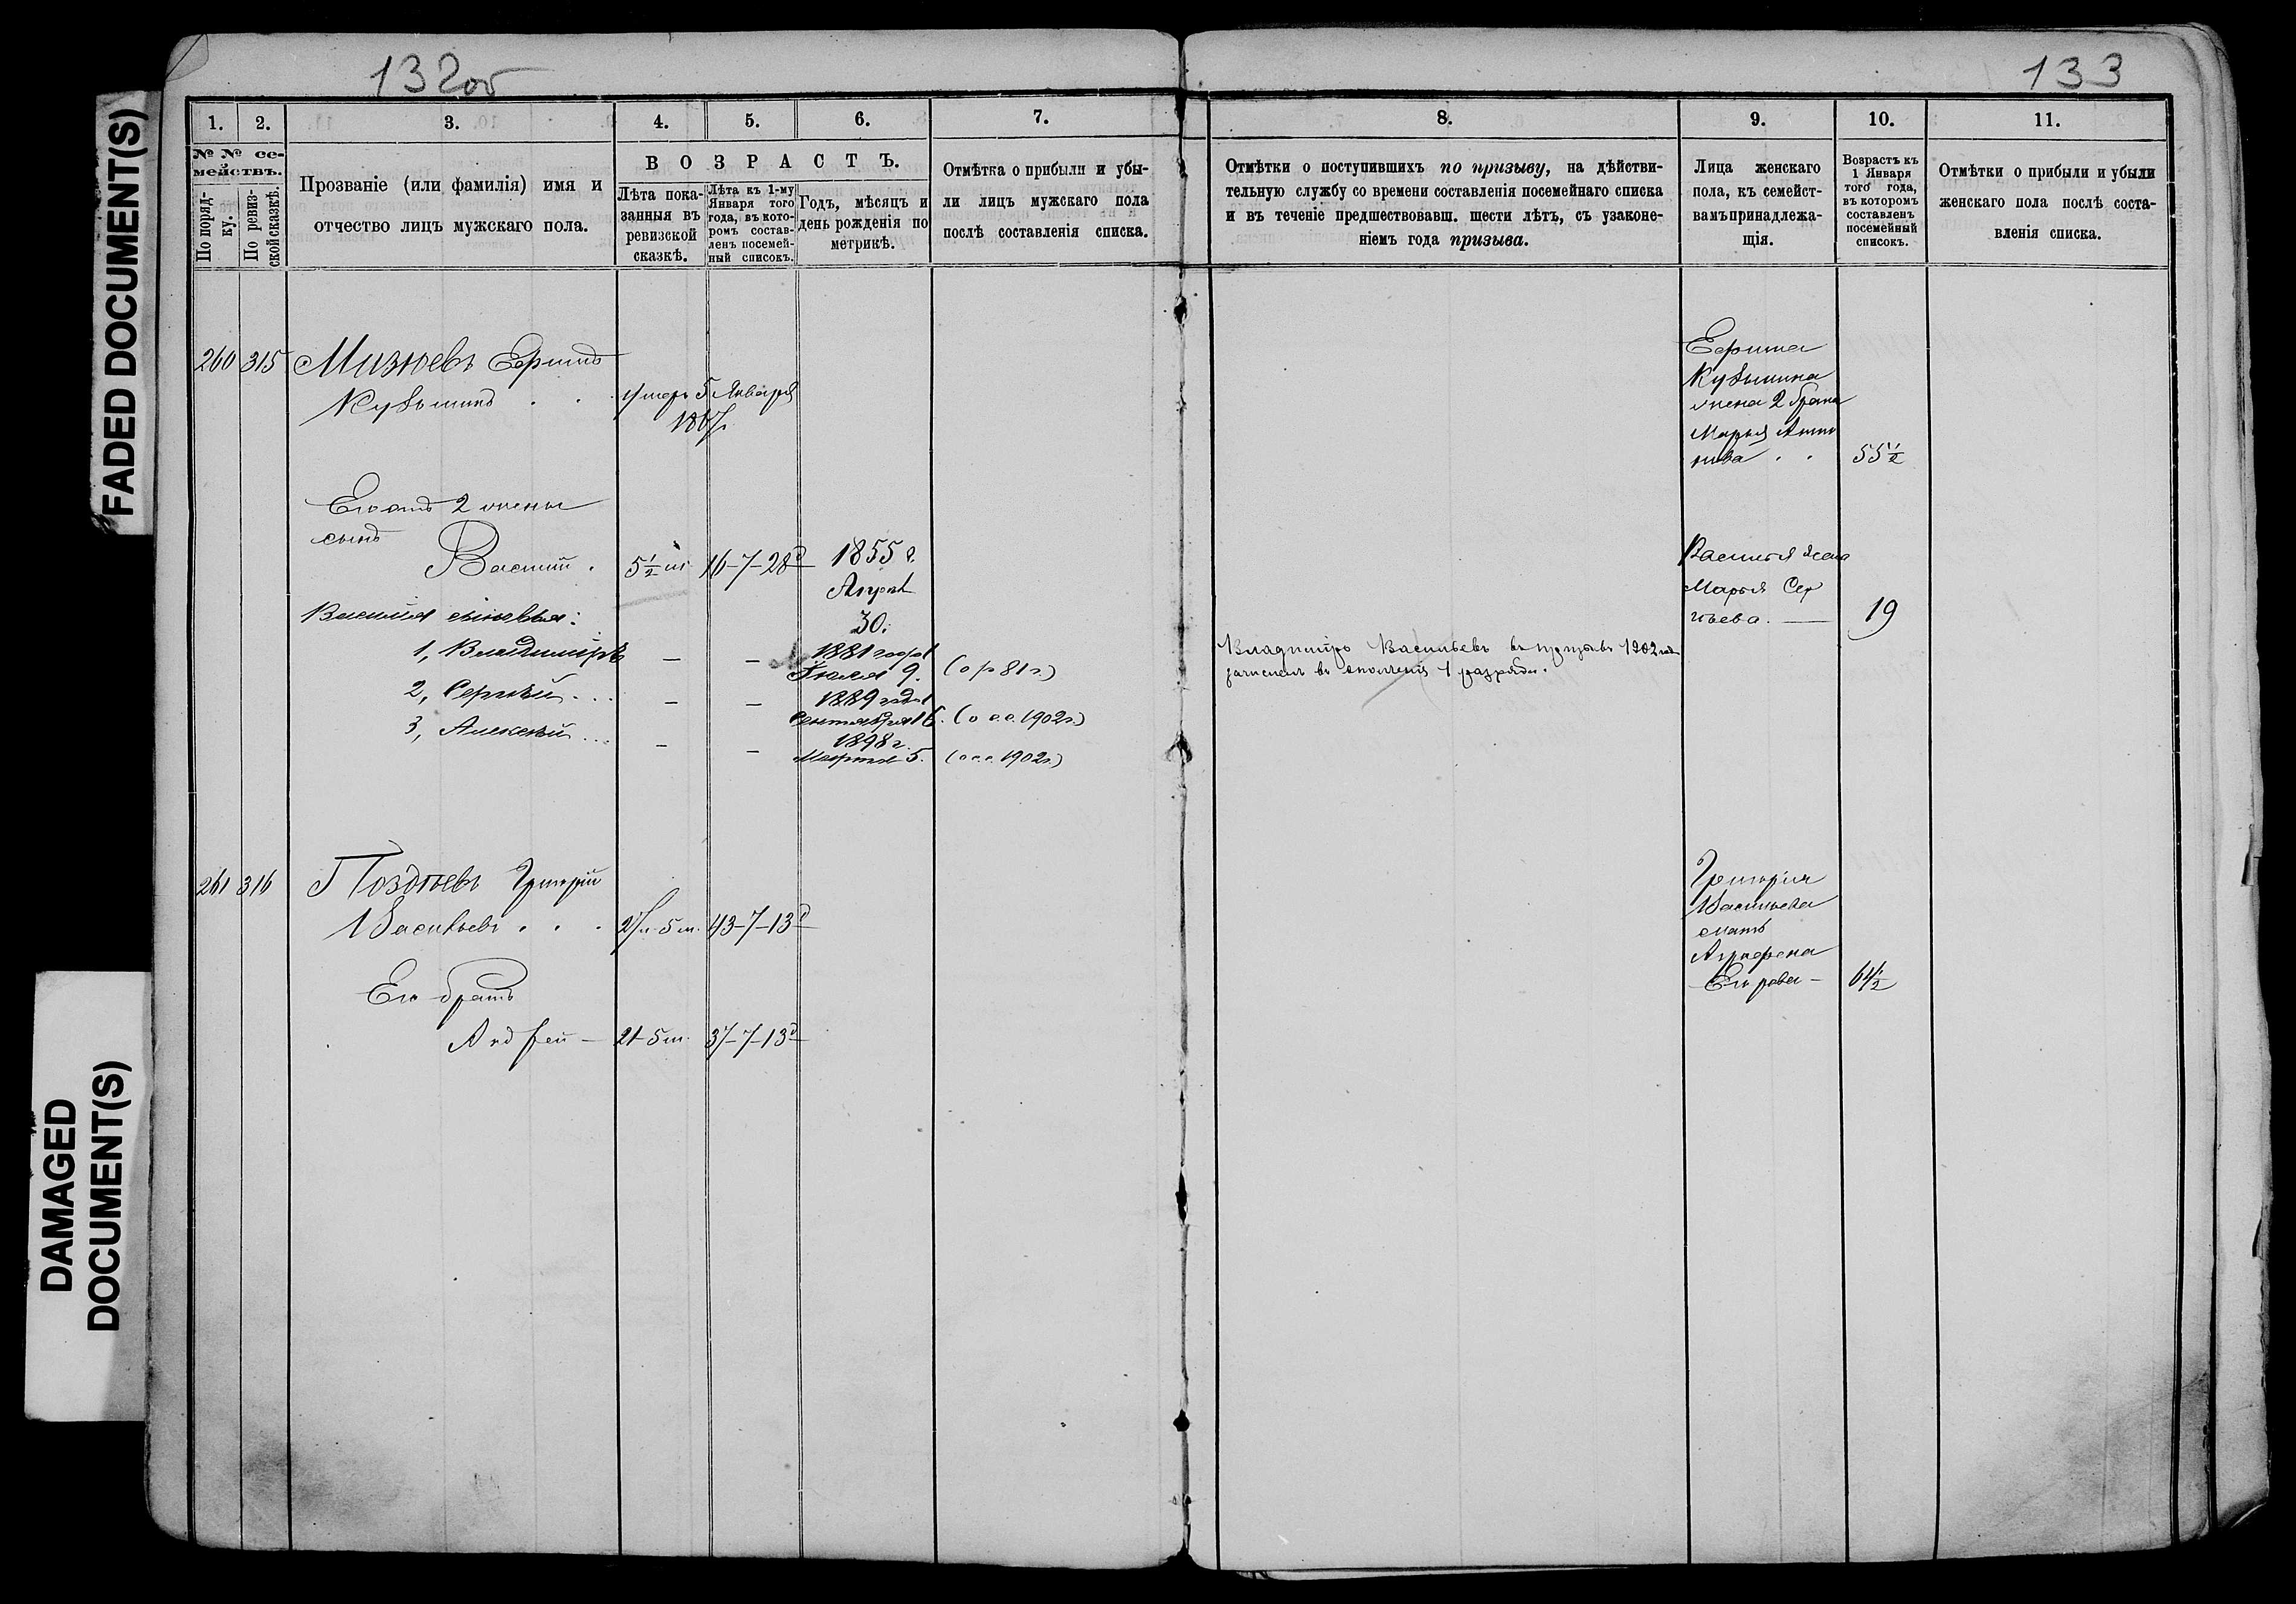 FADED DOCUMENT(S)
DAMAGED
DOCUMENT(S)
132об
133
1.
2.
3.
4.
5.
6.
7.
8.
9.
10.
11.
№ № се-
мействъ.
По поряд-
ку.
По ревиз-
ской сказкѣ.
Прозваніе (или фамилія) имя и
отчество лицъ мужскаго пола.
ВОЗРАСТЪ.
Лѣта пока-
занныя въ
ревизской
сказкѣ.
Лѣта къ 1-му
Января того
года, въ кото-
ромъ состав-
ленъ посемей-
ный списокъ.
Годъ, мѣсяцъ и
день рожденія по
метрикѣ.
Отмѣтка о прибыли и убы-
ли лицъ мужскаго пола
послѣ составленія списка.
Отмѣтки о поступившихъ по призыву, на дѣйстви-
тельную службу со времени составленія посемейнаго списка
и въ теченіе предшествовавш. шести лѣтъ, съ узаконе-
ніемъ года призыва.
Лица женскаго
пола, къ семейст-
вамъ принадлежа-
щія.
Возрастъ къ
1 Января
того года,
въ которомъ
составленъ
посемейный
списокъ.
Отмѣтки о прибыли и убыли
женскаго пола послѣ соста-
вленія списка.
260 315 Мизюевъ Ефимъ
Кузьминъ . . умеръ 5 Января
1867.
Ефима
Кузьмина
жена 2 брака
Марья Анто
нова . . 55½
Его отъ 2 жены
сынъ
Василій . 5½ м 16-7-28д 1855 г.
Апрѣл
30.
Василья жена
Марья Сер
гѣева. — 19
Василія сыновья:
1, Владиміръ — — 1881 года
Іюля 9. (о р 81 г.)
Владиміръ Васильевъ въ призывъ 1902 года
зачисленъ въ ополченіе 1 разряда.
2, Сергѣй . . . — — 1889 года
Сентября 16. (о с.с. 1902 г.)
3, Алексѣй . . . — — 1898 г.
Марта 5. (о с.с. 1902 г.)
261 316 Поздѣевъ Григорій
Васильевъ . . . 27-5 м. 43-7-13д
Григорія
Васильева
мать
Аграфена
Егорова — 64½
Его братъ
Андрей — 21-5 м. 37-7-13д